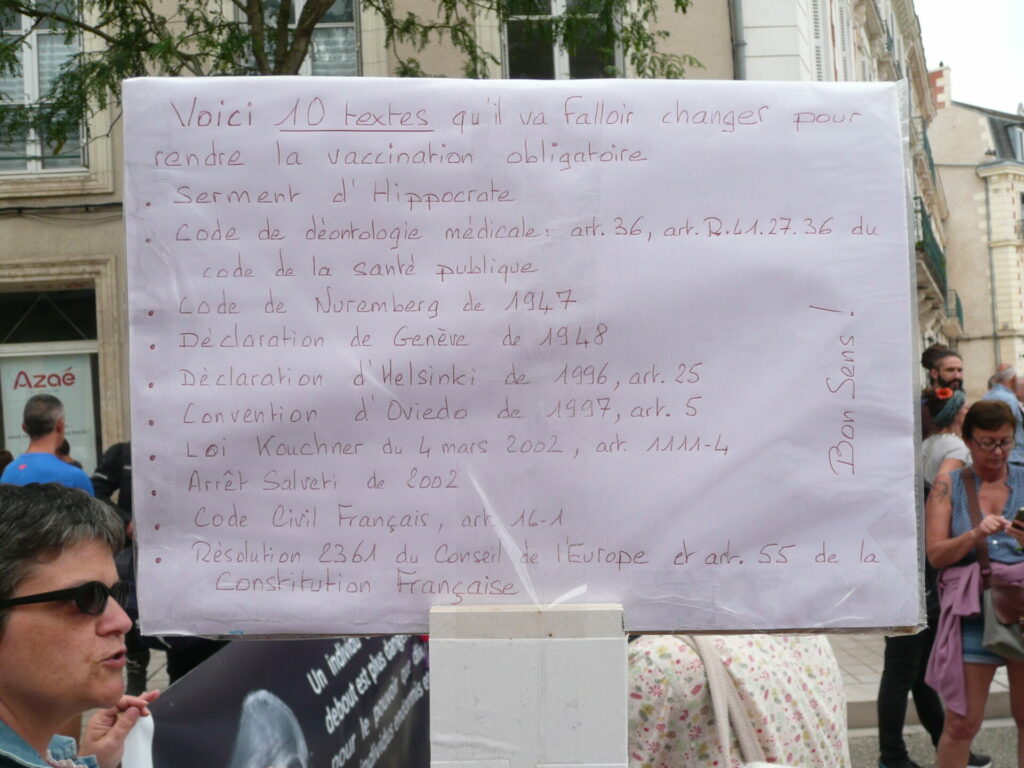 Voici 10 textes qu'il va falloir changer pour
rendre la vaccination obligatoire
• Serment d'Hippocrate
• Code de déontologie médicale: art. 36, art. R.41.27.36 du
code de la santé publique
• Code de Nuremberg de 1947
• Déclaration de Genève de 1948
• Déclaration d'Helsinki de 1996, art. 25
• Convention d'Oviedo de 1997, art. 5
• Loi Kouchner du 4 mars 2002, art. 1111-4
• Arrêt Salveti de 2002
• Code Civil Français, art. 16-1
• Résolution 2361 du Conseil de l'Europe et art. 55 de la
Constitution Française
Bon Sens !
Azaé
Un individu
debout est plus dange
pour le pouvoir que dix
individus endormis e